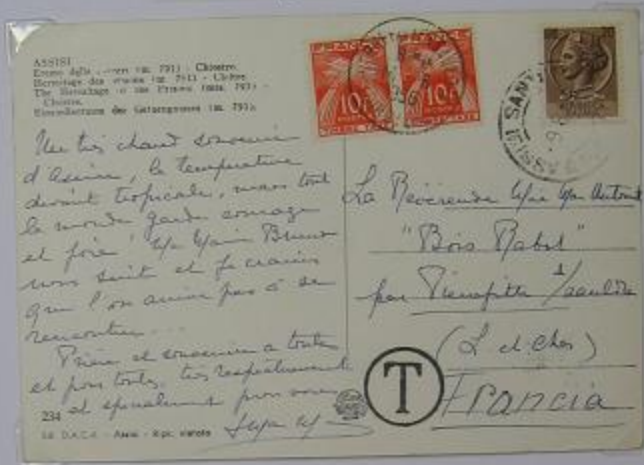 ASSISI
Eremo delle Carceri (m. 791) - Chiostro.
Hermitage des (m. 791) - Cloître.
The Hermitage of the Prisons (mt. 791) -
Cloister.
(m. 791).
Un très chaud souvenir
d'Assise, la température
devient tropicale, mais tout
le monde garde courage
et joie!
nous suit et je crains
que l'on arrive pas à se
rencontrer...
Prière et souvenir à toutes
et pour toutes, très respectueusement
et spécialement pour vous
234
Ed. D.A.C.A. - Assisi - Ripr. vietata
10F
10F
ASSISI SANT
La Révérende
"Bois Rabot"
par Pierrefitte s/Sauldre
(L. et Cher)
Francia
T